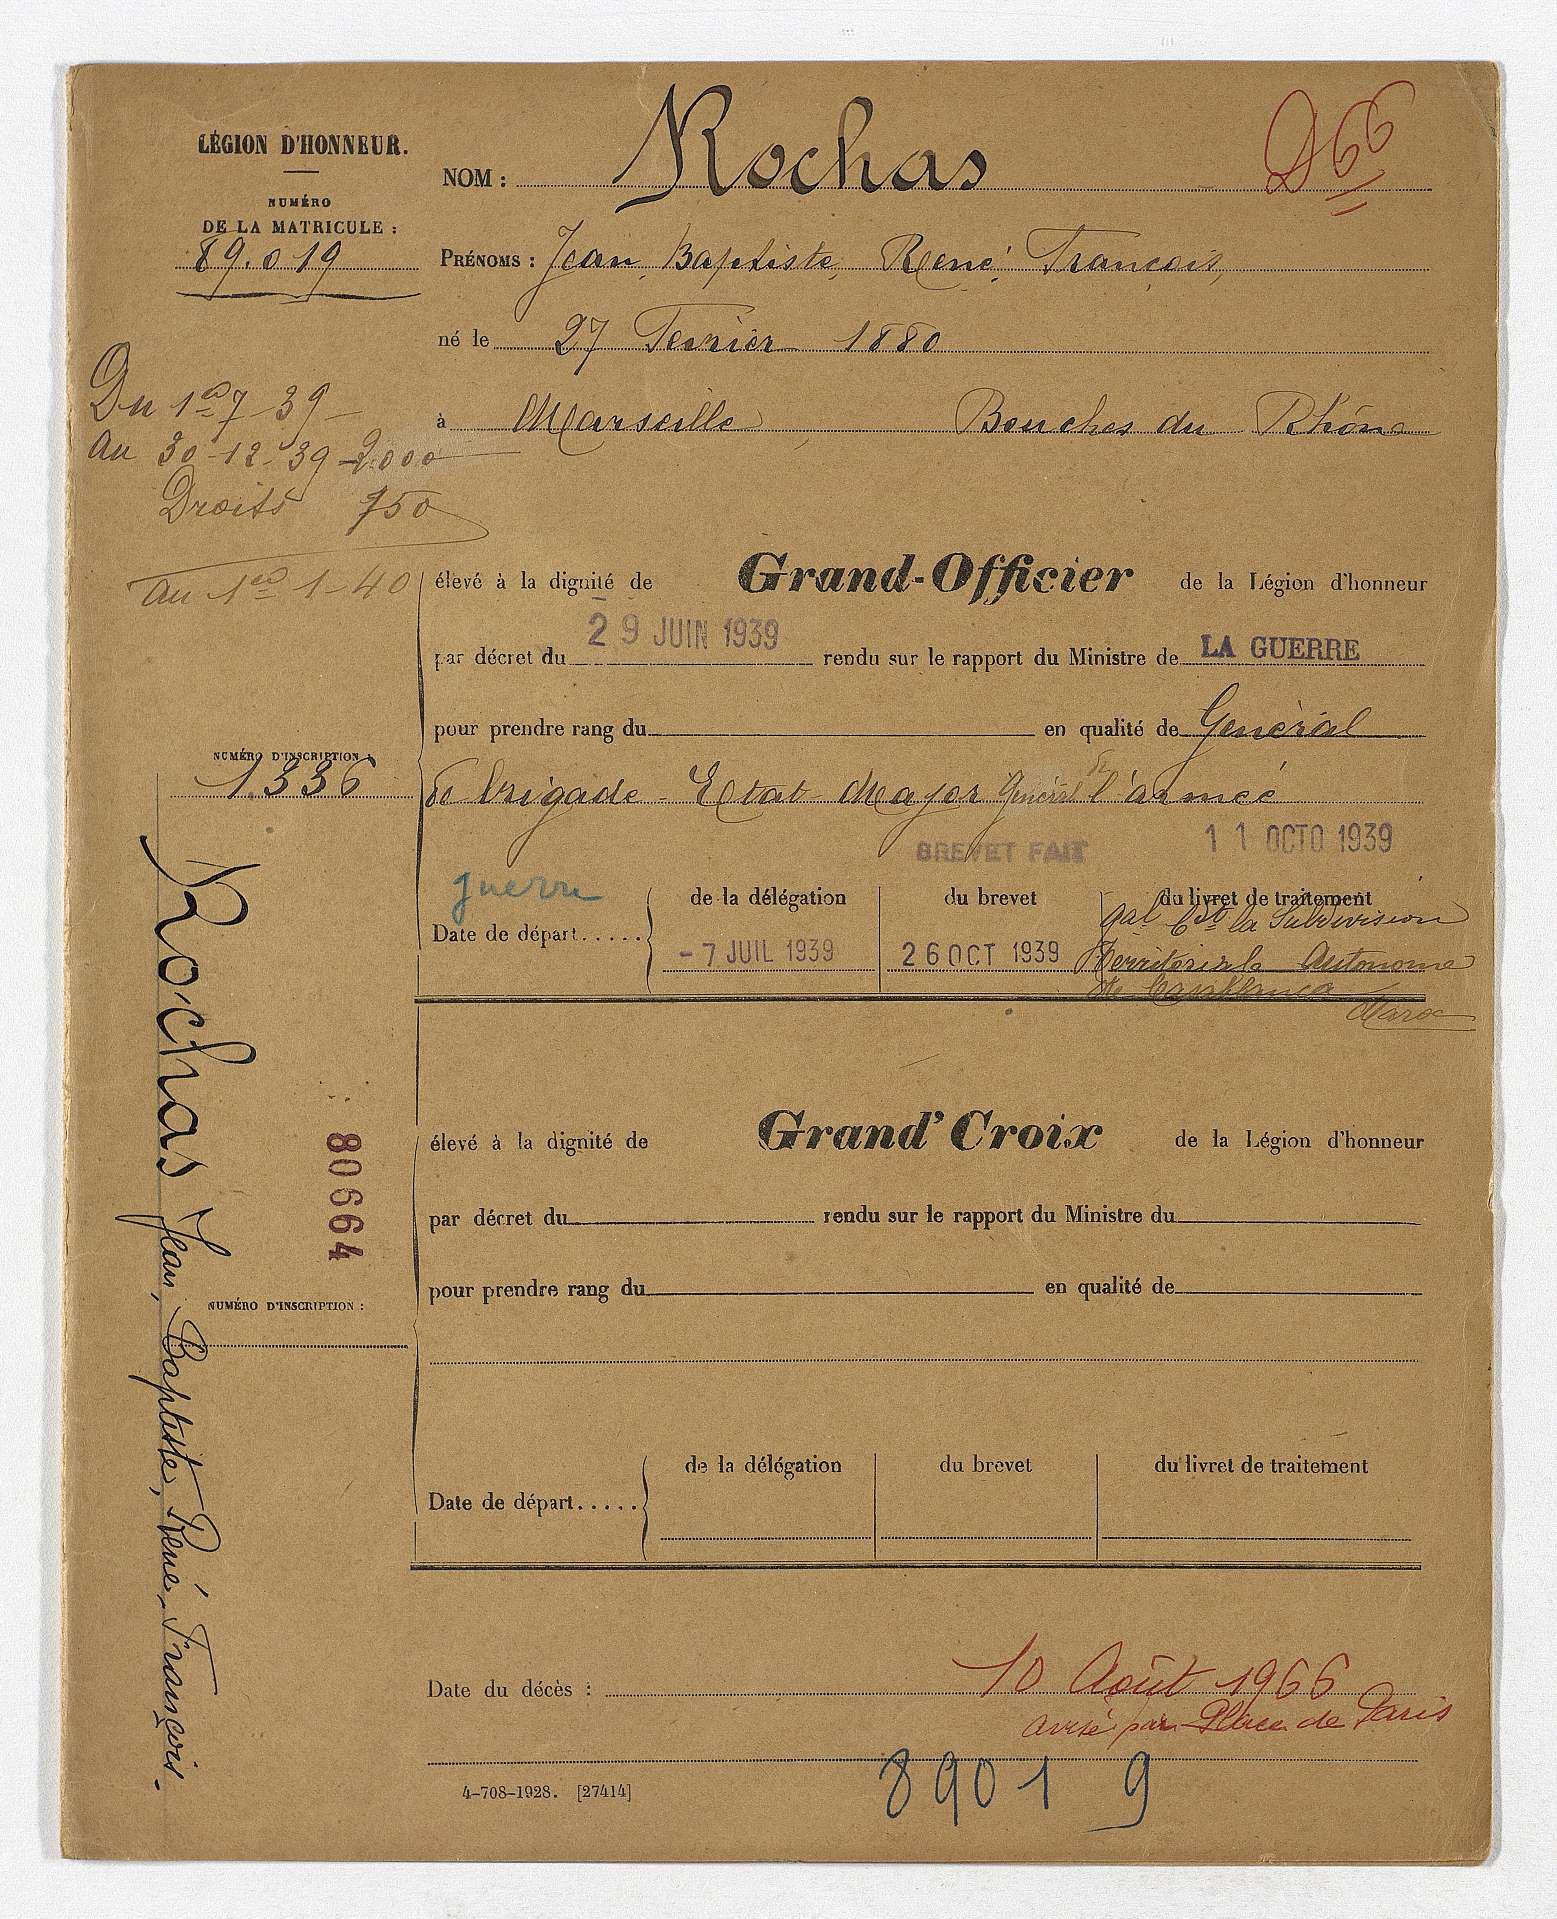 LÉGION D'HONNEUR.
NUMÉRO
DE LA MATRICULE :
89.019
NOM : Rochas
D66
PRÉNOMS : Jean, Baptiste, René, François,
né le 27 Fevrier 1880
à Marseille, Bouches du Rhône
Du 1er 7 39
au 30-12-39 2000
Droits 150
au 1er 1-40
élevé à la dignité de Grand-Officier de la Légion d'honneur
par décret du 29 JUIN 1939 rendu sur le rapport du Ministre de LA GUERRE
pour prendre rang du en qualité de Général
NUMÉRO D'INSCRIPTION :
1.336
de brigade - Etat Major Général de l'armée
BREVET FAIT 11 OCTO 1939
guerre
Date de départ.....
de la délégation
du brevet
du livret de traitement
-7 JUIL 1939
26 OCT 1939
Gal Ct la Subdivision
Territoriale Autonome
de Casablanca
Maroc
Rochas Jean, Baptiste, René, François.
80664
élevé à la dignité de Grand'Croix de la Légion d'honneur
par décret du rendu sur le rapport du Ministre du
pour prendre rang du en qualité de
NUMÉRO D'INSCRIPTION :
Date de départ.....
de la délégation
du brevet
du livret de traitement
Date du décès : 10 Août 1966
avisé par Place de Paris
4-708-1928. [27414]
89019